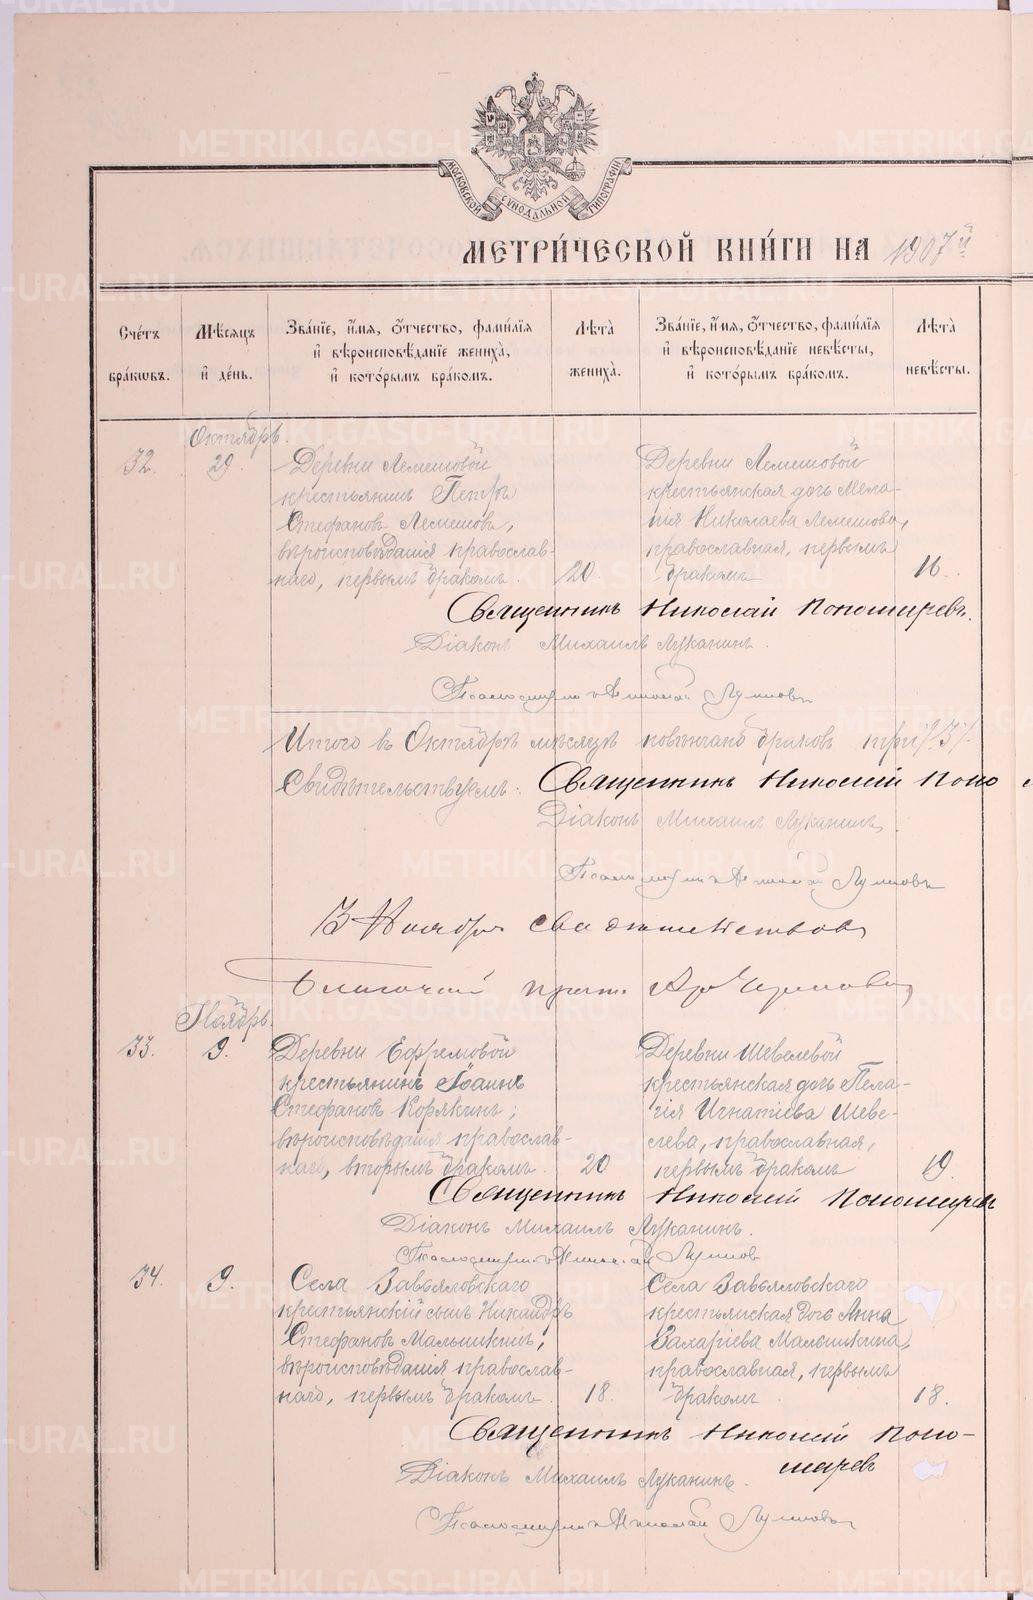 МОСКОВСКОЙ СУНОДАЛЬНОЙ ТИПОГРАФІИ
МЕТРИ́ЧЕСКОЙ КНИ́ГИ НА 1907й
Сче́тъ бра́кωвъ.
Мѣ́сяцъ и де́нь.
Зва́нїе, и́мя, ѻ҆́тчество, фами́лїя и҆ вѣроисповѣ́данїе жениха̀, и҆ кото́рымъ бра́комъ.
Лѣта̀ жениха̀.
Зва́нїе, и́мя, ѻ҆́тчество, фами́лїя и҆ вѣроисповѣ́данїе невѣ́сты, и҆ кото́рымъ бра́комъ.
Лѣта̀ невѣ́сты.
Октябрь.
32. 29. Деревни Лемешовой
крестьянинъ Петръ
Стефановъ Лемешовъ,
вѣроисповѣданія православ-
наго, первымъ бракомъ. 20.
Деревни Лемешовой
крестьянская дочь Мела-
нія Николаева Лемешова,
православная, первымъ
бракомъ 16.
Священникъ Николай Пономаревъ.
Діаконъ Михаилъ Луканинъ.
Псаломщикъ Николай
Итого въ Октябрѣ мѣсяцѣ повѣнчано браковъ три /3/.
Свидѣтельствуемъ: Священникъ Николай Поно
Діаконъ Михаилъ Луканинъ,
Псаломщикъ Николай
3 Ноября свидѣтельствовалъ
Благочинный прот.
Ноябрь.
33. 9. Деревни Ефремовой
крестьянинъ Іоаннъ
Стефановъ Корякинъ,
вѣроисповѣданія православ-
наго, вторымъ бракомъ. 20
Деревни Шевелевой
крестьянская дочь Пела-
гія Игнатіева Шеве-
лева, православная,
первымъ бракомъ 19.
Священникъ Николай Пономаревъ
Діаконъ Михаилъ Луканинъ.
Псаломщикъ Николай
34. 9. Села Завьяловскаго
крестьянскій сынъ Никандръ
Стефановъ Малышкинъ,
вѣроисповѣданія православ-
наго, первымъ бракомъ. 18.
Села Завьяловскаго
крестьянская дочь Анна
Захаріева Малышкина,
православная, первымъ
бракомъ. 18.
Священникъ Николай Поно-
маревъ
Діаконъ Михаилъ Луканинъ.
Псаломщикъ Николай
METRIKI.GASO-URAL.RU